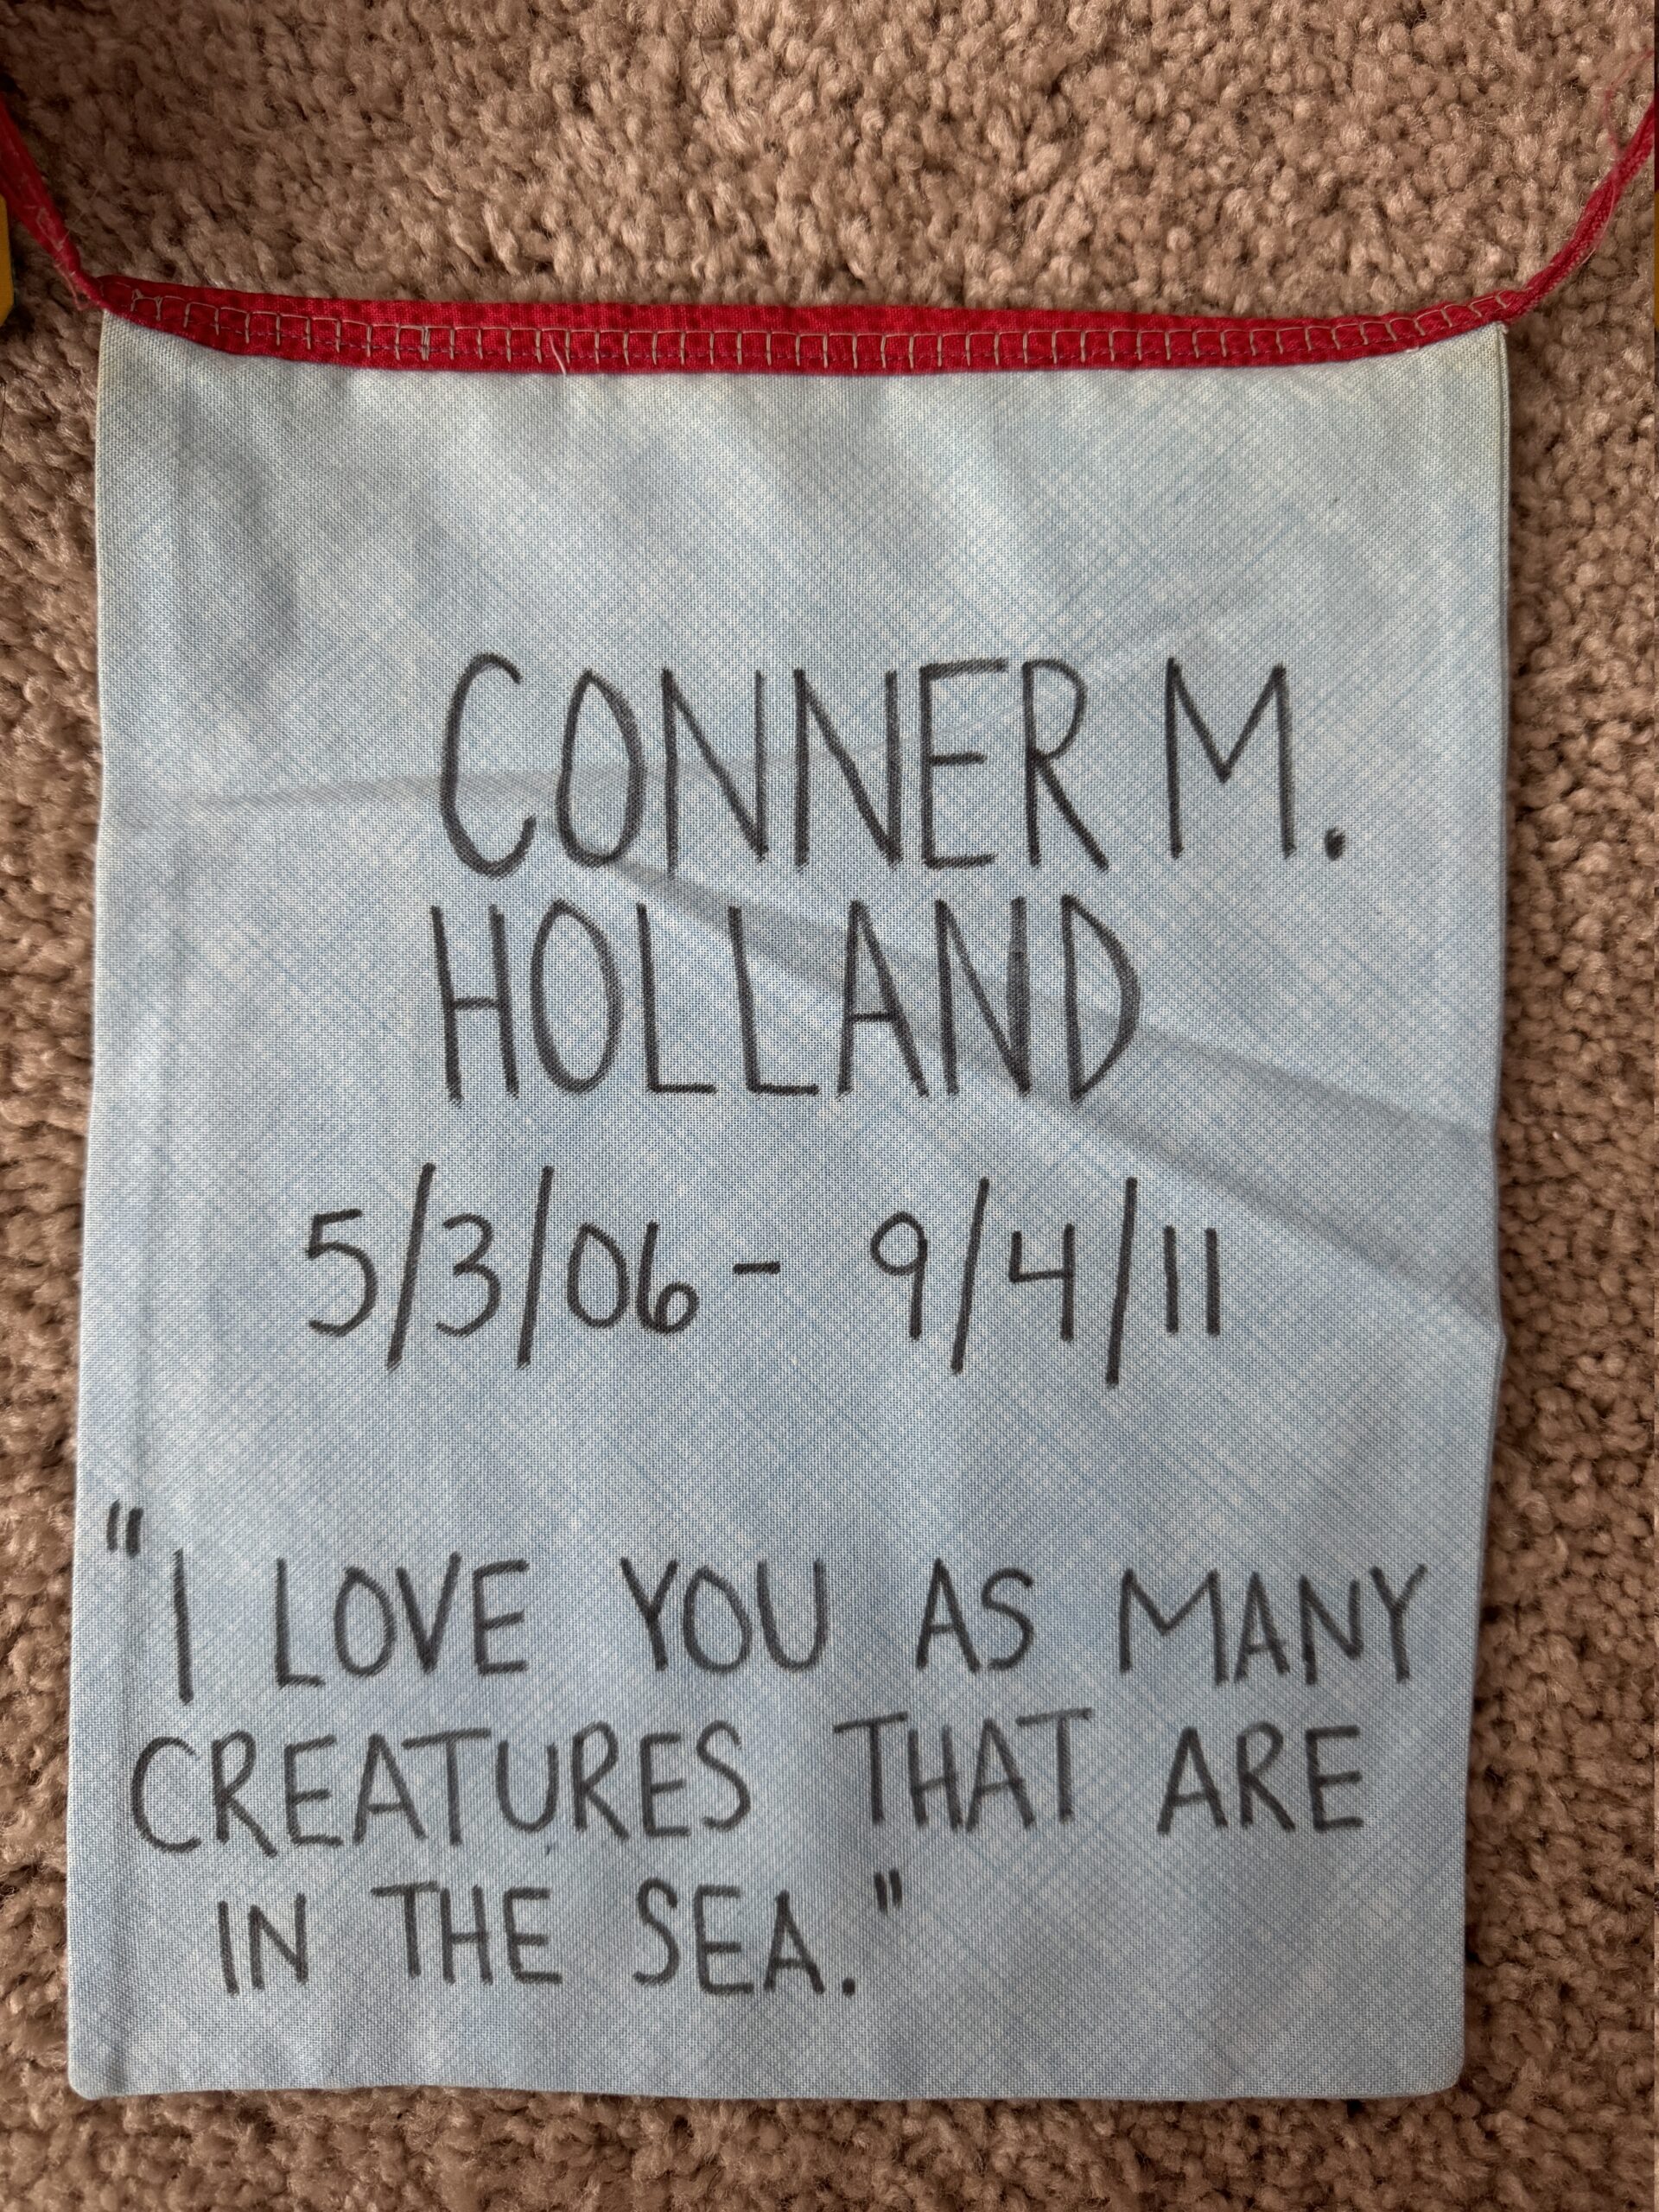 CONNER M.
HOLLAND
5/3/06 - 9/4/11
"I LOVE YOU AS MANY
CREATURES THAT ARE
IN THE SEA."